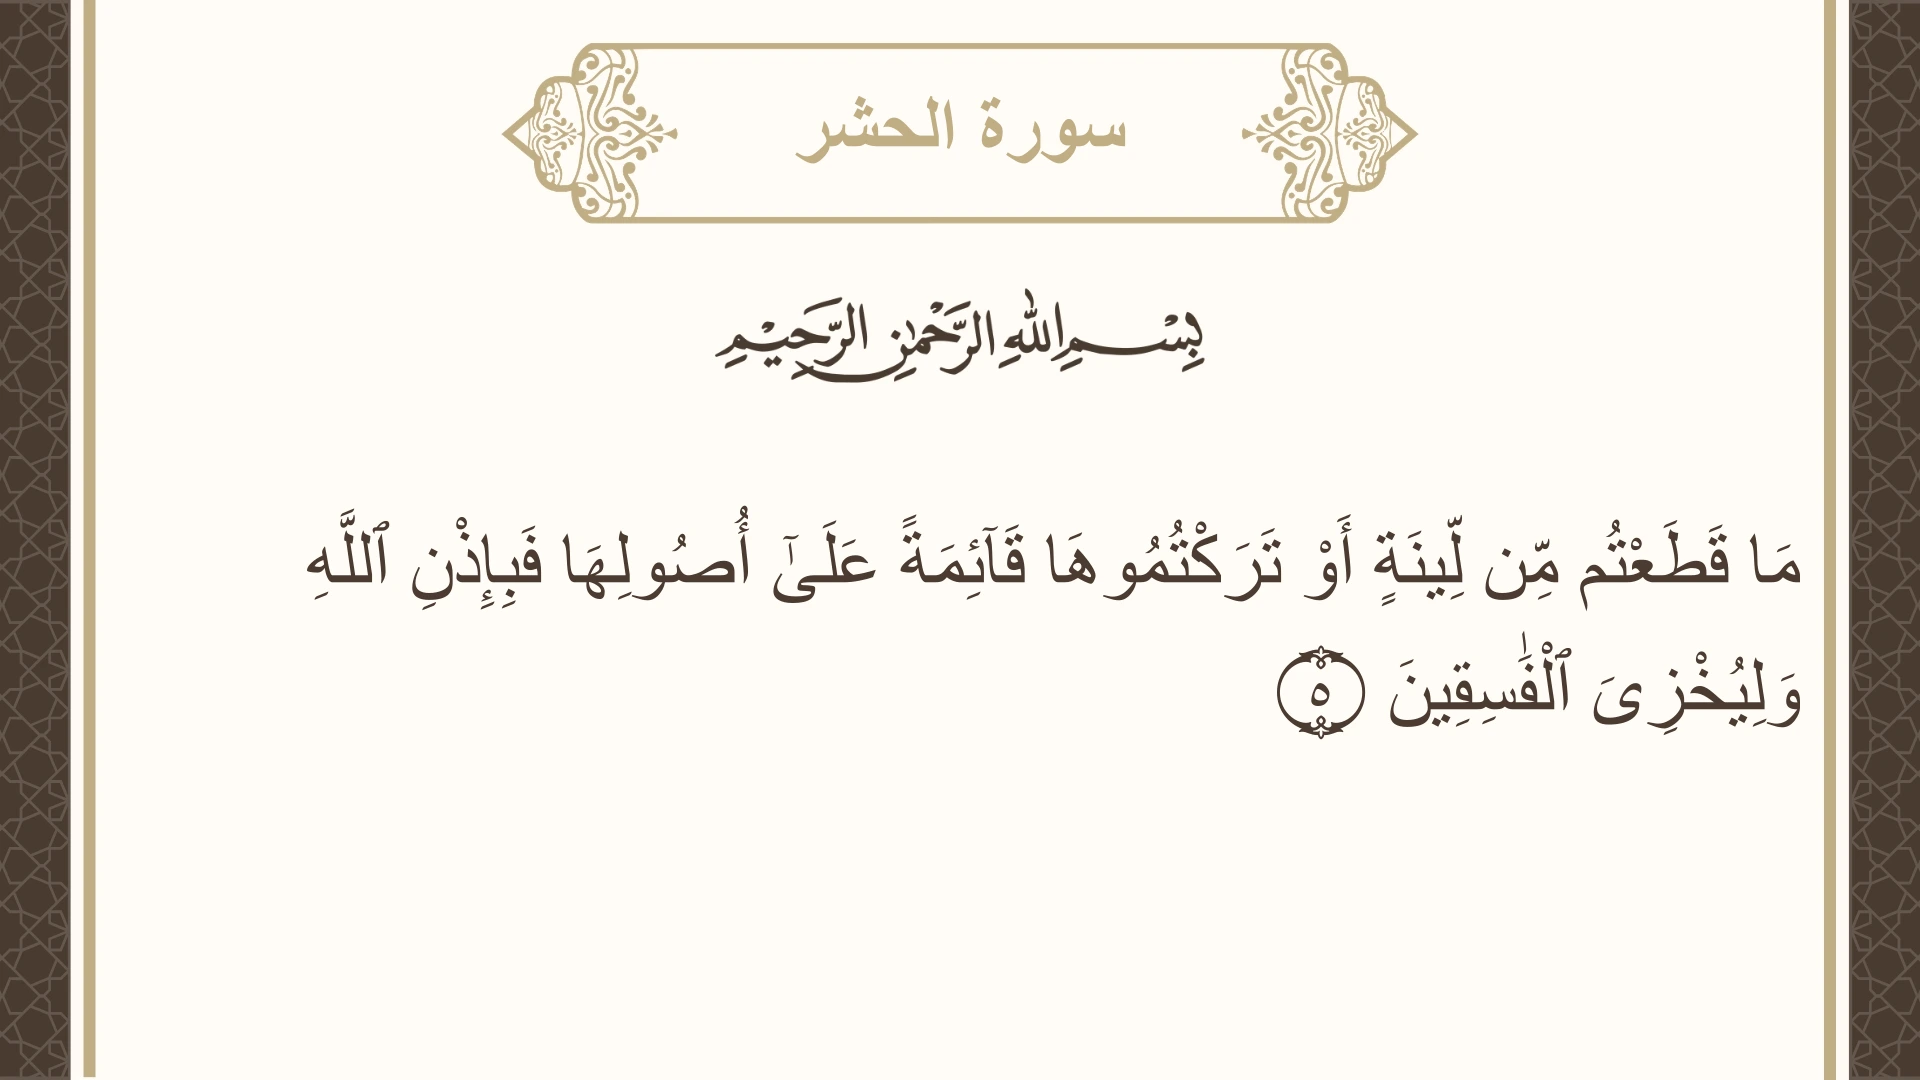 سورة الحشر
بِسْمِ اللهِ الرَّحْمٰنِ الرَّحِيْمِ
مَا قَطَعْتُم مِّن لِّينَةٍ أَوْ تَرَكْتُمُوهَا قَآئِمَةً عَلَىٰٓ أُصُولِهَا فَبِإِذْنِ ٱللَّهِ
وَلِيُخْزِىَ ٱلْفَٰسِقِينَ ۝٥